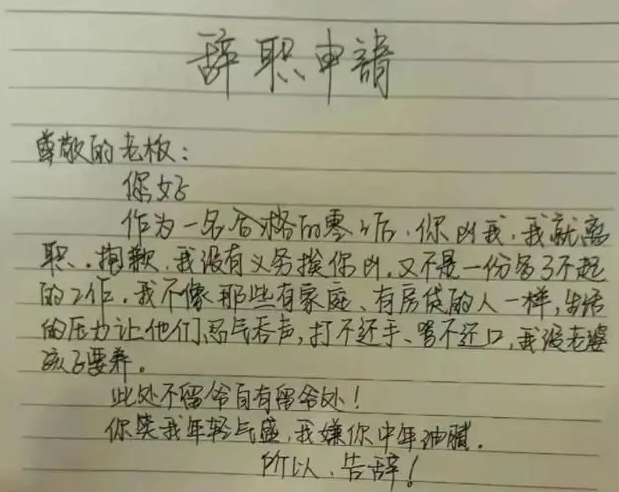 辞职申請
尊敬的老板：
你好
作为一名合格的零零后，你凶我，我就离
职。抱歉，我没有义务挨你凶，又不是一份多了不起
的工作。我不像那些有家庭、有房贷的人一样，生活
的压力让他们忍气吞声，打不还手、骂不还口，我没老婆
孩子要养。
此处不留爷自有留爷处！
你笑我年轻气盛，我嫌你中年油腻。
所以，告辞！